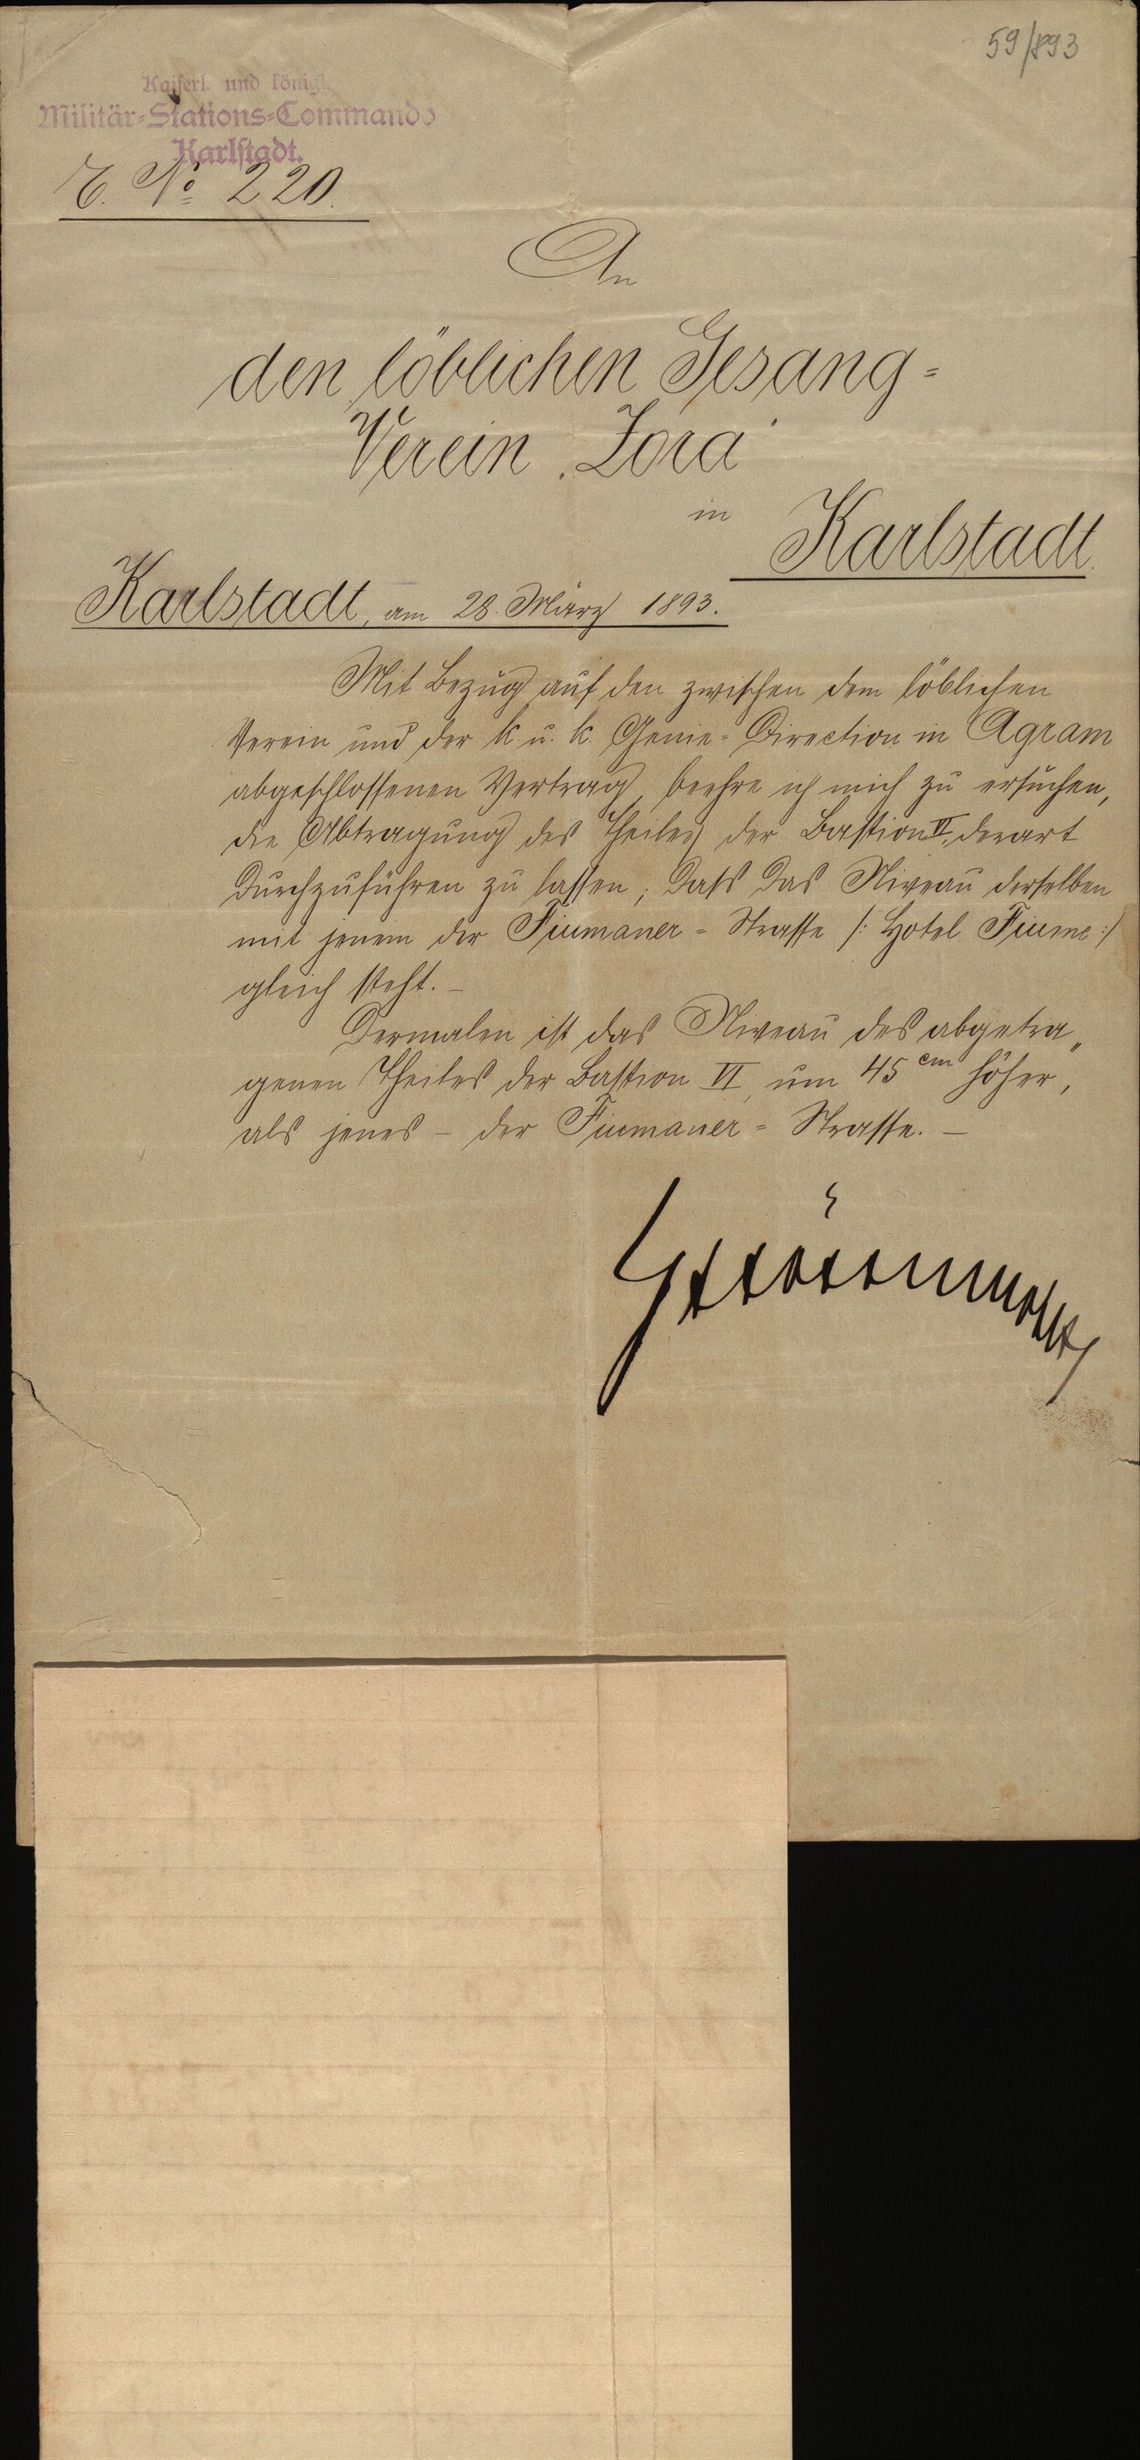 59/893
Kaiserl. und königl.
Militär-Stations-Commando
Karlstadt.
E. No 220.
An
den löblichen Gesang-
Verein „Zora"
in Karlstadt.
Karlstadt, am 28. März 1893.
Mit Bezug auf den zwischen dem löblichen
Verein und der k. u. k. Genie-Direction in Agram
abgeschlossenen Vertrag, beehre ich mich zu ersuchen,
die Abtragung des Theiles der Bastion VI, derart
durchzuführen zu lassen, daß das Niveau derselben
mit jenem der Fiumaner-Strasse /: Hotel Fiume :/
gleich steht. –
Dermalen ist das Niveau des abgetra„
genen Theiles der Bastion VI, um 45 cm höher,
als jenes – der Fiumaner-Strasse. –